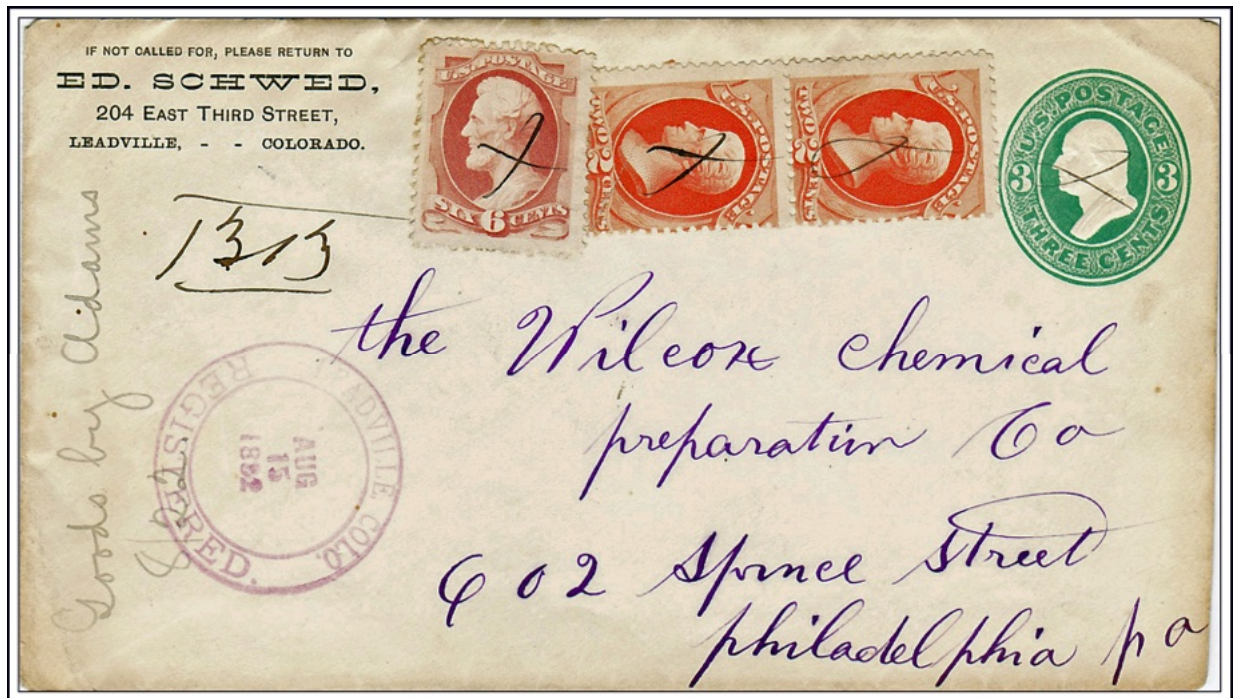 IF NOT CALLED FOR, PLEASE RETURN TO
ED. SCHWED,
204 EAST THIRD STREET,
LEADVILLE, - - COLORADO.
U.S. POSTAGE
SIX 6 CENTS
U.S. POSTAGE
TWO 2 CENTS
U.S. POSTAGE
TWO 2 CENTS
U.S. POSTAGE
3 3
THREE CENTS
Goods by Adams
ADVILLE, COLO.
AUG
15
1882
REGISTERED.
the Wilcox chemical
preparation Co
602 Spruce Street
philadelphia pa